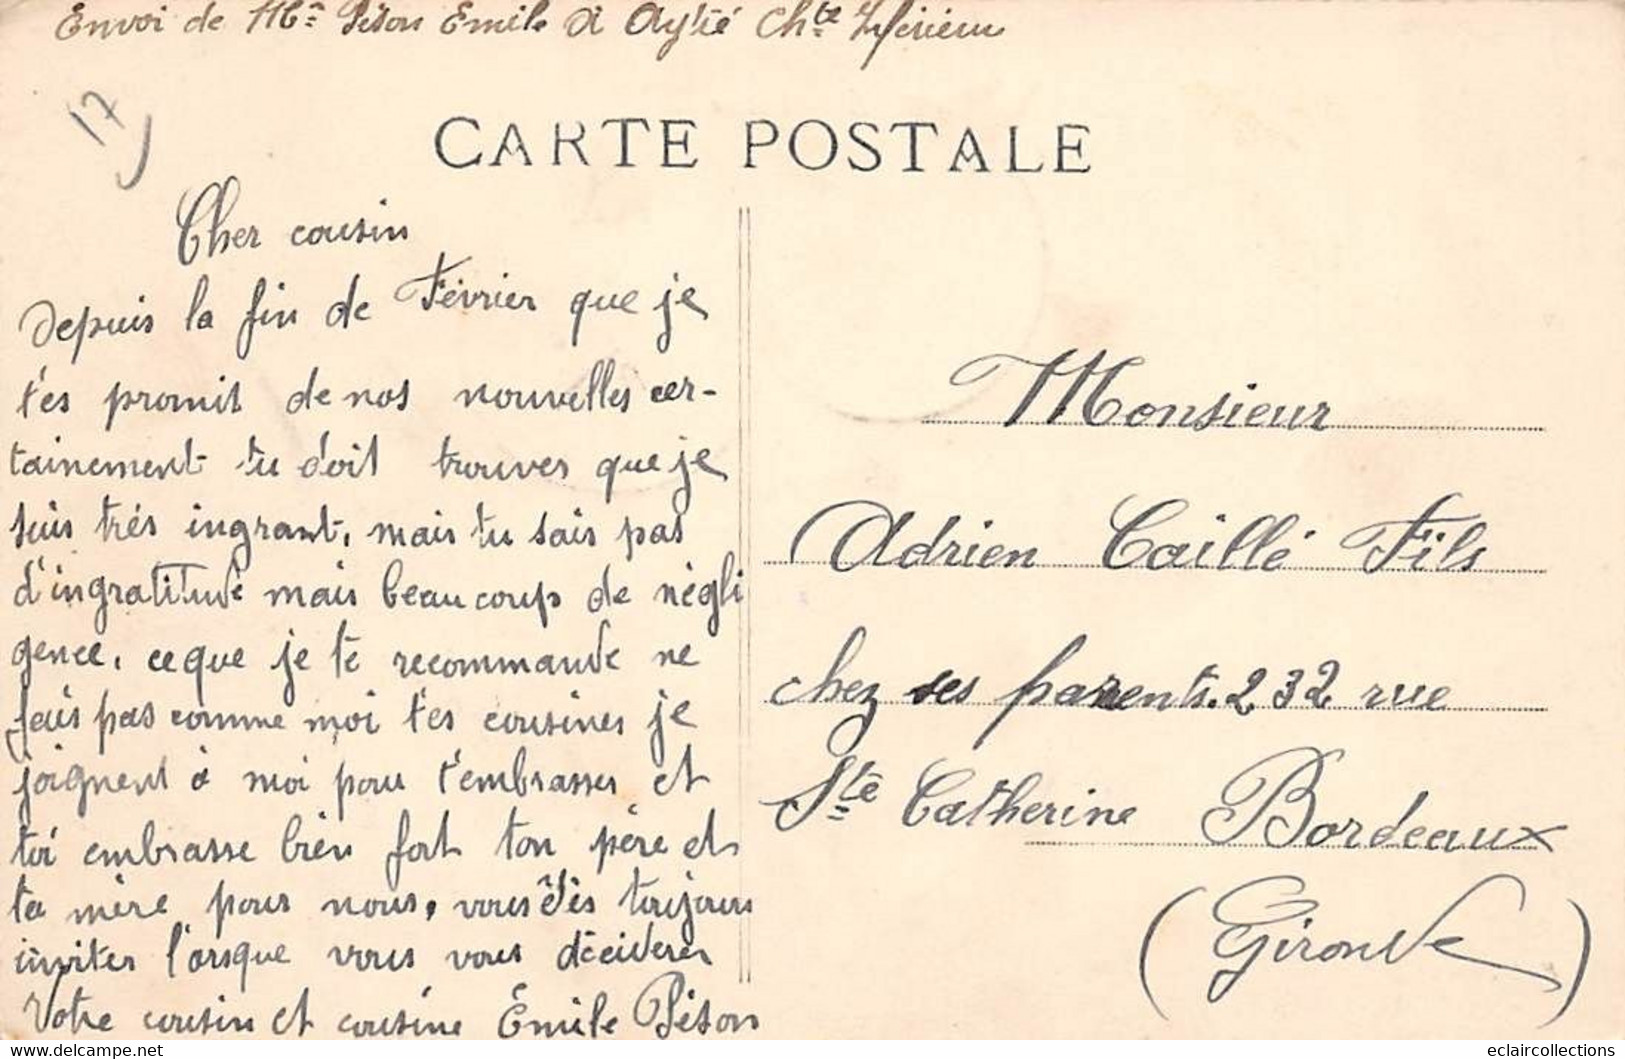 Envoi de Mr Péson Emile à Aytré Chte Inférieure
17
CARTE POSTALE
Cher cousin
Depuis la fin de Février que je
t'es promit de nos nouvelles cer-
tainement tu doit trouver que je
suis trés ingrant, mais tu sais pas
d'ingratitude mais beaucoup de négli
gence, ce que je te recommande ne
fais pas comme moi tes cousines je
joignent à moi pour t'embrasser et
toi embrasse bien fort ton père et
ta mère pour nous, vous êtes toujours
inviter l'orsque vous vous déciderer
Votre cousin et cousine Émile Péson
Monsieur
Adrien Caillé Fils
chez ses parents. 232 rue
Ste Catherine Bordeaux
(Gironde)
eclaircollections